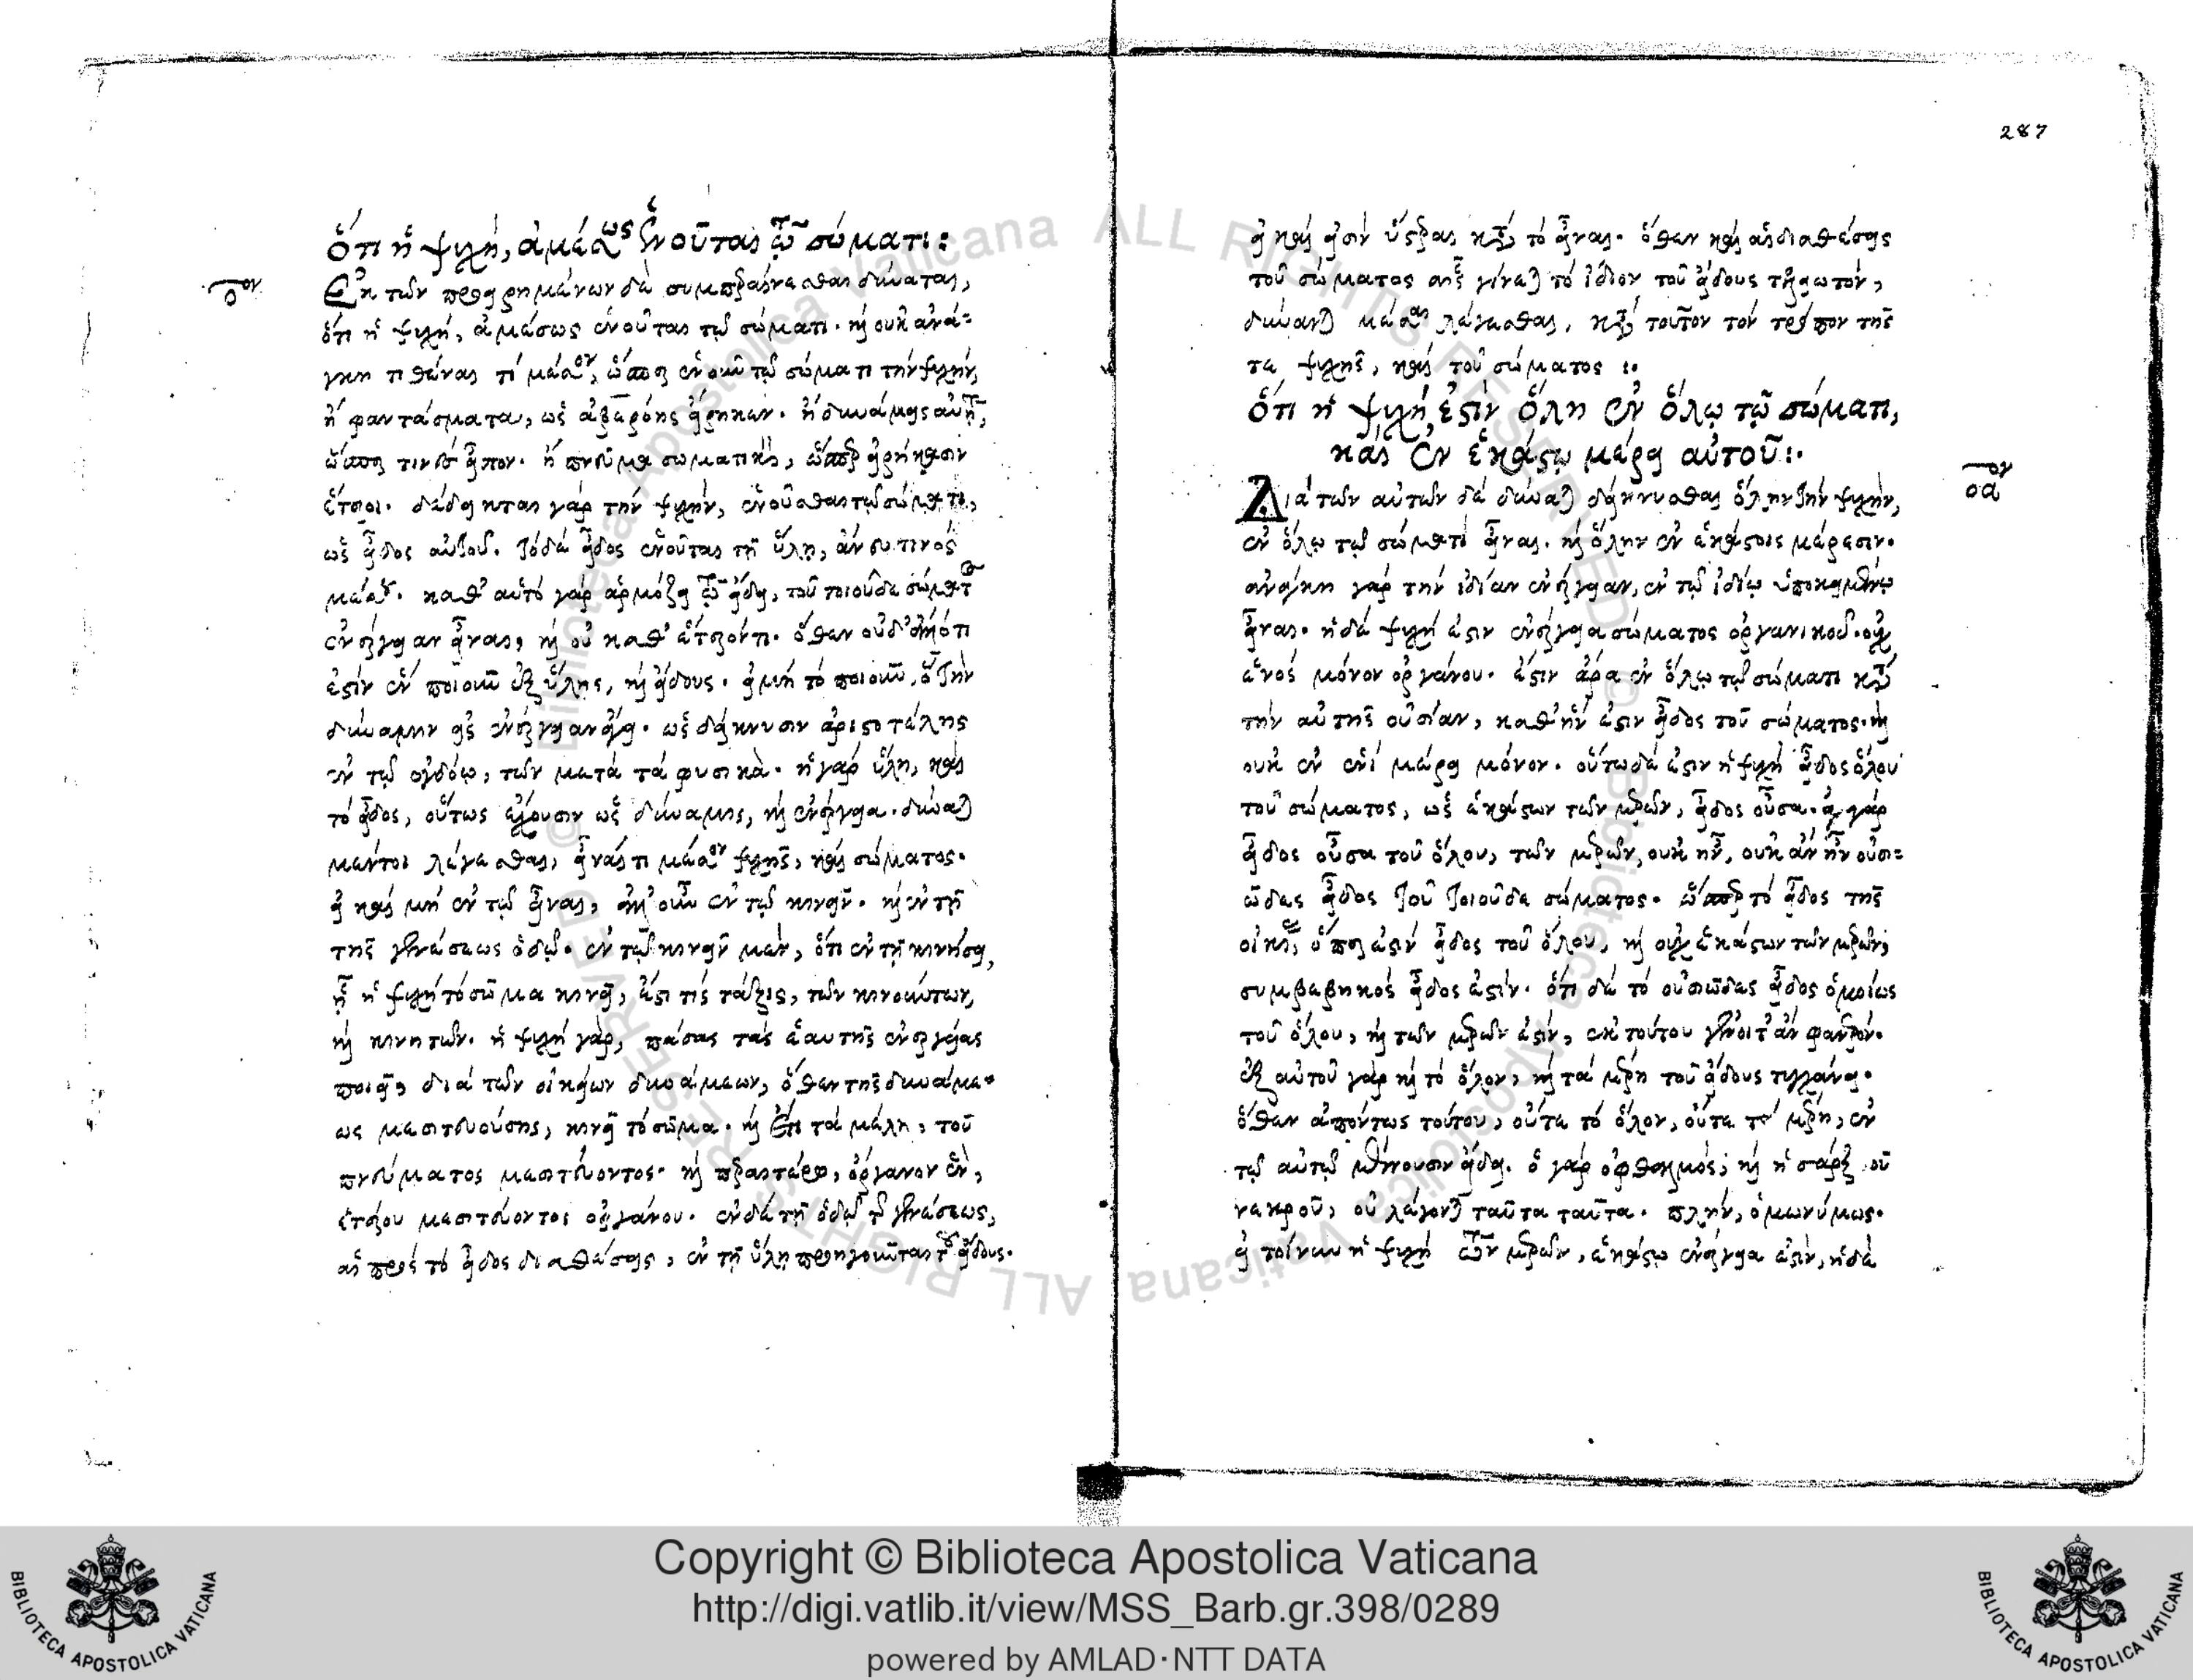 ὅτι ἡ ψυχή, ἀμέσως ἑνοῦται τῷ σώματι:
ον
ο
Ἐκ τῶν προειρημένων δὲ συμπεραίνεσθαι δύναται,
ὅτι ἡ ψυχή, ἀμέσως ἑνοῦται τῷ σώματι. καὶ οὐκ ἀνά-
γκη τιθέναι τὶ μέσον, ὥσπερ ἑνοῦν τῷ σώματι τὴν ψυχήν,
ἢ φαντάσματα, ὡς ἀβερόης εἴρηκεν. ἢ δυνάμεις αὐτῆς,
ὥσπερ τινὲς εἶπον. ἢ πνεῦμα σωματικὸν, ὥσπερ εἰρήκασιν
ἕτεροι. δέδεικται γὰρ τὴν ψυχὴν, ἑνοῦσθαι τῷ σώματι,
ὡς εἶδος αὐτοῦ. τὸ δὲ εἶδος ἑνοῦται τῇ ὕλῃ, ἄνευ τινὸς
μέσου. καθ' αὑτὸ γὰρ ἁρμόζει τῷ εἴδει, τοῦ τοιοῦδε σώματος
ἐνέργειαν εἶναι, καὶ οὐ καθ' ἕτερόν τι. ὅθεν οὐδ'
ἐστὶν ἓν ποιοῦν ἐξ ὕλης, καὶ εἴδους. εἰ μὴ τὸ ποιοῦν, ὃ τὴν
δύναμιν εἰς ἐνέργειαν ἄγει. ὡς δείκνυσιν ἀριστοτέλης
ἐν τῷ ὀγδόῳ, τῶν μετὰ τὰ φυσικὰ. ἡ γὰρ ὕλη, καὶ
τὸ εἶδος, οὕτως ἔχουσιν ὡς δύναμις, καὶ ἐνέργεια. δύναται
μέντοι λέγεσθαι, εἶναί τι μέσον ψυχῆς, καὶ σώματος.
εἰ καὶ μὴ ἐν τῷ εἶναι, ἀλλ' οὖν ἐν τῷ κινεῖν. καὶ ἐν τῇ
τῆς γενέσεως ὁδῷ. ἐν τῷ κινεῖν μὲν, ὅτι ἐν τῇ κινήσει,
ᾗ ἡ ψυχὴ τὸ σῶμα κινεῖ, ἔστι τίς τάξις, τῶν κινούντων,
καὶ κινητῶν. ἡ ψυχὴ γὰρ, πάσας τὰς ἑαυτῆς ἐνεργείας
ποιεῖ, διὰ τῶν οἰκείων δυνάμεων, ὅθεν τῆς δυνάμε-
ως μεσιτευούσης, κινεῖ τὸ σῶμα. καὶ ἔτι τὰ μέλη, τοῦ
πνεύματος μεσιτεύοντος. καὶ περαιτέρω, ὄργανον ἓν,
ἑτέρου μεσιτεύοντος ὀργάνου. ἐν δὲ τῇ ὁδῷ τῆς γενέσεως,
αἱ πρὸς τὸ εἶδος διαθέσεις, ἐν τῇ ὕλῃ προηγοῦνται τοῦ εἴδους.
287
εἰ καὶ εἰσὶν ὕστεραι κατὰ τὸ εἶναι. ὅθεν καὶ αἱ διαθέσεις
τοῦ σώματος αἷς γίνεται τὸ ἴδιον τοῦ εἴδους τελειωτὸν,
δύνανται μέσαι λέγεσθαι, κατὰ τοῦτον τὸν τρόπον τῆς
τε ψυχῆς, καὶ τοῦ σώματος:.
ὅτι ἡ ψυχή, ἐστὶν ὅλη ἐν ὅλῳ τῷ σώματι,
καὶ ἐν ἑκάστῳ μέρει αὐτοῦ:.
ον
οα
Διὰ τῶν αὐτῶν δὲ δύναται δείκνυσθαι ὅλην τὴν ψυχὴν,
ἐν ὅλῳ τῷ σώματι εἶναι. καὶ ὅλην ἐν ἑκάστοις μέρεσιν.
ἀνάγκη γὰρ τὴν ἰδίαν ἐνέργειαν, ἐν τῷ ἰδίῳ ὑποκειμένῳ
εἶναι. ἡ δὲ ψυχή ἐστιν ἐνέργεια σώματος ὀργανικοῦ. οὐχ
ἑνὸς μόνον ὀργάνου. ἔστιν ἄρα ἐν ὅλῳ τῷ σώματι κατὰ
τὴν αὐτῆς οὐσίαν, καθ' ἣν ἐστιν εἶδος τοῦ σώματος. καὶ
οὐκ ἐν ἑνὶ μέρει μόνον. οὕτω δέ ἐστιν ἡ ψυχὴ εἶδος ὅλου
τοῦ σώματος, ὡς ἑκάστων τῶν μερῶν, εἶδος οὖσα. εἰ γὰρ
εἶδος οὖσα τοῦ ὅλου, τῶν μερῶν, οὐκ ἦν, οὐκ ἂν ἦν οὐσι-
ῶδες εἶδος τοῦ τοιοῦδε σώματος. ὥσπερ τὸ εἶδος τῆς
οἰκίας, ὅπερ ἐστὶν εἶδος τοῦ ὅλου, καὶ οὐχ ἑκάστων τῶν μερῶν,
συμβεβηκὸς εἶδος ἐστίν. ὅτι δὲ τὸ οὐσιῶδες εἶδος ὁμοίως
τοῦ ὅλου, καὶ τῶν μερῶν ἐστὶν, ἐκ τούτου γένοιτ' ἂν φανερόν.
ἐξ αὐτοῦ γὰρ καὶ τὸ ὅλον, καὶ τὰ μέρη τοῦ εἴδους τυγχάνει.
ὅθεν ἀπόντως τούτου, οὔτε τὸ ὅλον, οὔτε τὰ μέρη, ἐν
τῷ αὐτῷ μένουσιν εἴδει. ὁ γὰρ ὀφθαλμὸς, καὶ ἡ σὰρξ τοῦ
νεκροῦ, οὐ λέγονται ταῦτα ταῦτα. πλὴν, ὁμωνύμως.
εἰ τοίνυν ἡ ψυχὴ τῶν μερῶν, ἑκάστῳ ἐνέργεια ἐστὶν, ἡ δὲ
Copyright © Biblioteca Apostolica Vaticana
http://digi.vatlib.it/view/MSS_Barb.gr.398/0289
powered by AMLAD·NTT DATA
BIBLIOTECA APOSTOLICA VATICANA
BIBLIOTECA APOSTOLICA VATICANA